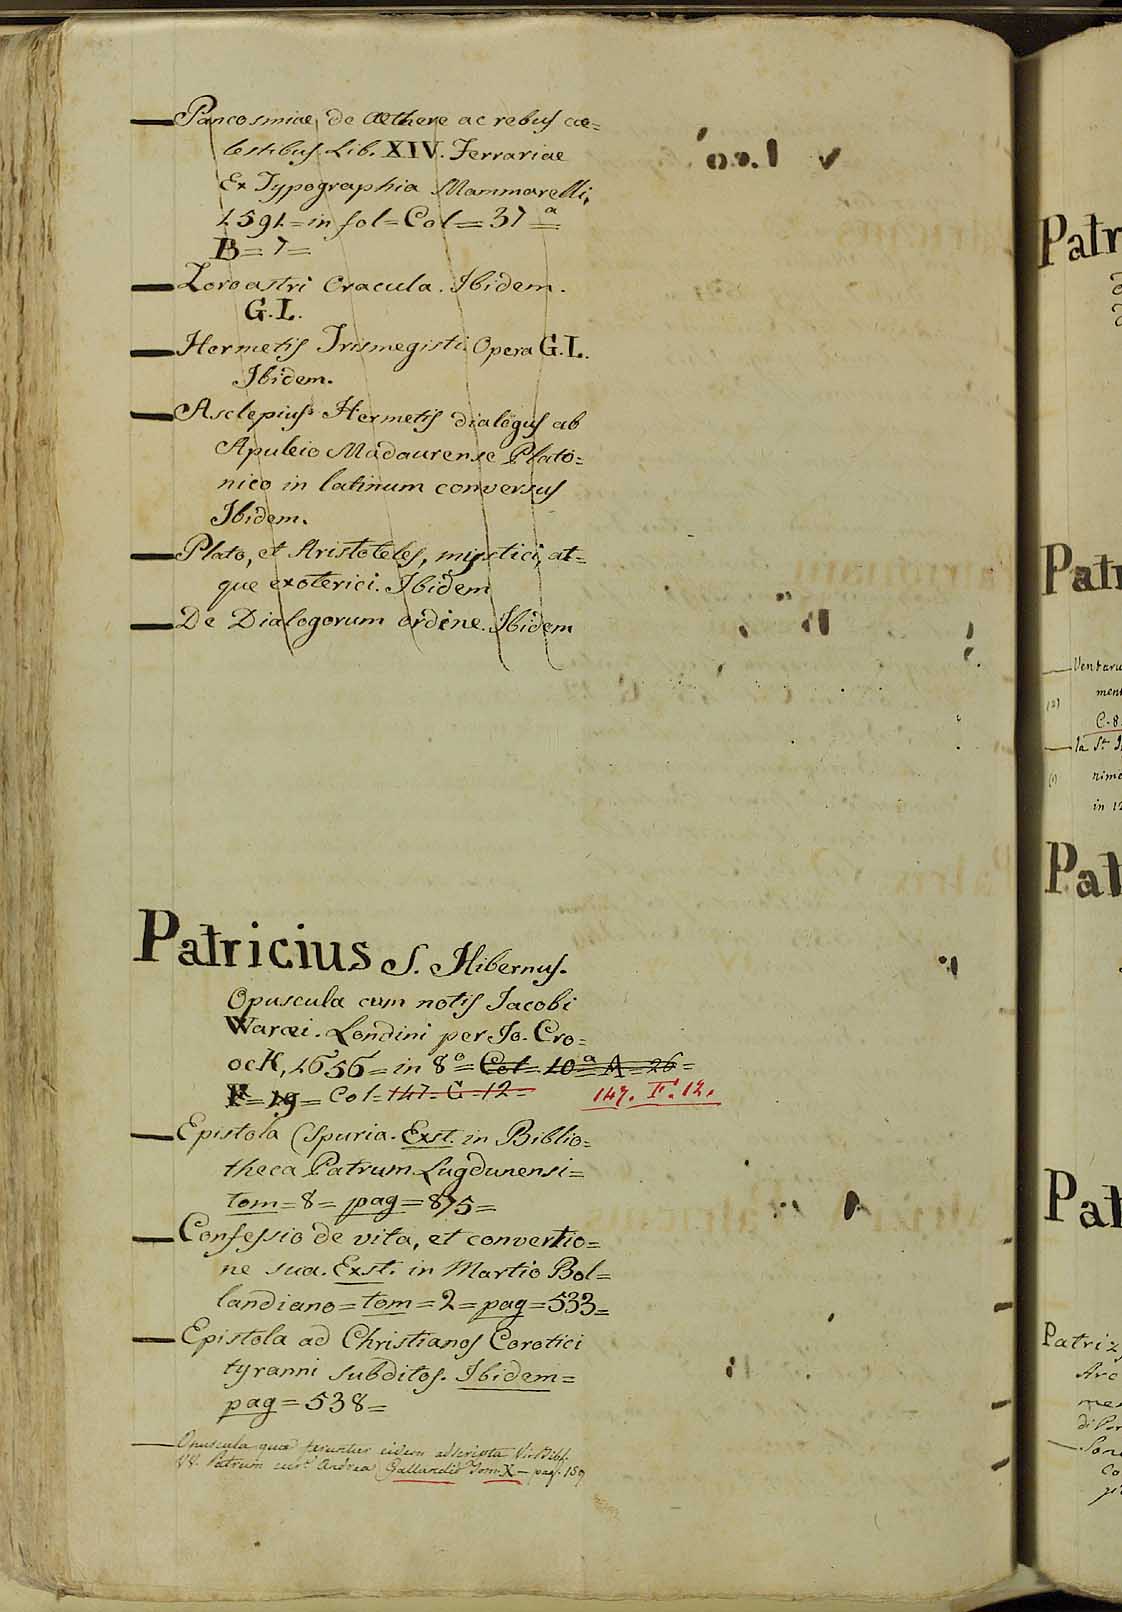 Pancosmiae de Æthere ac rebus cae=
lestibus Lib. XIV. Ferrariae
Ex Typographia Mammarelli,
1591=in fol=Col=37ª
B=7=
Zoroastri Oracula. Ibidem.
G.L.
Hermetis Trismegisti Opera G.L.
Ibidem.
Asclepius Hermetis dialogus ab
Apuleio Madaurense Plato=
nico in latinum conversus
Ibidem.
Plato, et Aristoteles, mystici, at=
que exoterici. Ibidem
De Dialogorum ordine. Ibidem
Patricius S. Hibernus.
Opuscula cum notis Jacobi
Waræi. Londini per Jo. Cro=
ocK, 1656=in 8º=Col=10ª A=26=
19=Col=147-G-12= 147. F. 12.
Epistola (spuria. Exst. in Biblio=
theca Patrum Lugdunensi=
tom=8=pag=875=
Confessio de vita, et convertio=
ne sua. Exst. in Martio Bol=
landiano=tom=2=pag=533=
Epistola ad Christianos Corotici
tyranni subditos. Ibidem=
pag=538=
Opuscula quae feruntur eidem adscripta V. Bibl.
VV. Patrum Andrea Gallandio Tom. X - pag. 159
Patr
Patr
Ventaru
ment
C. 8
la St
nime
in 12
Pat
Pat
Patriz
Arc